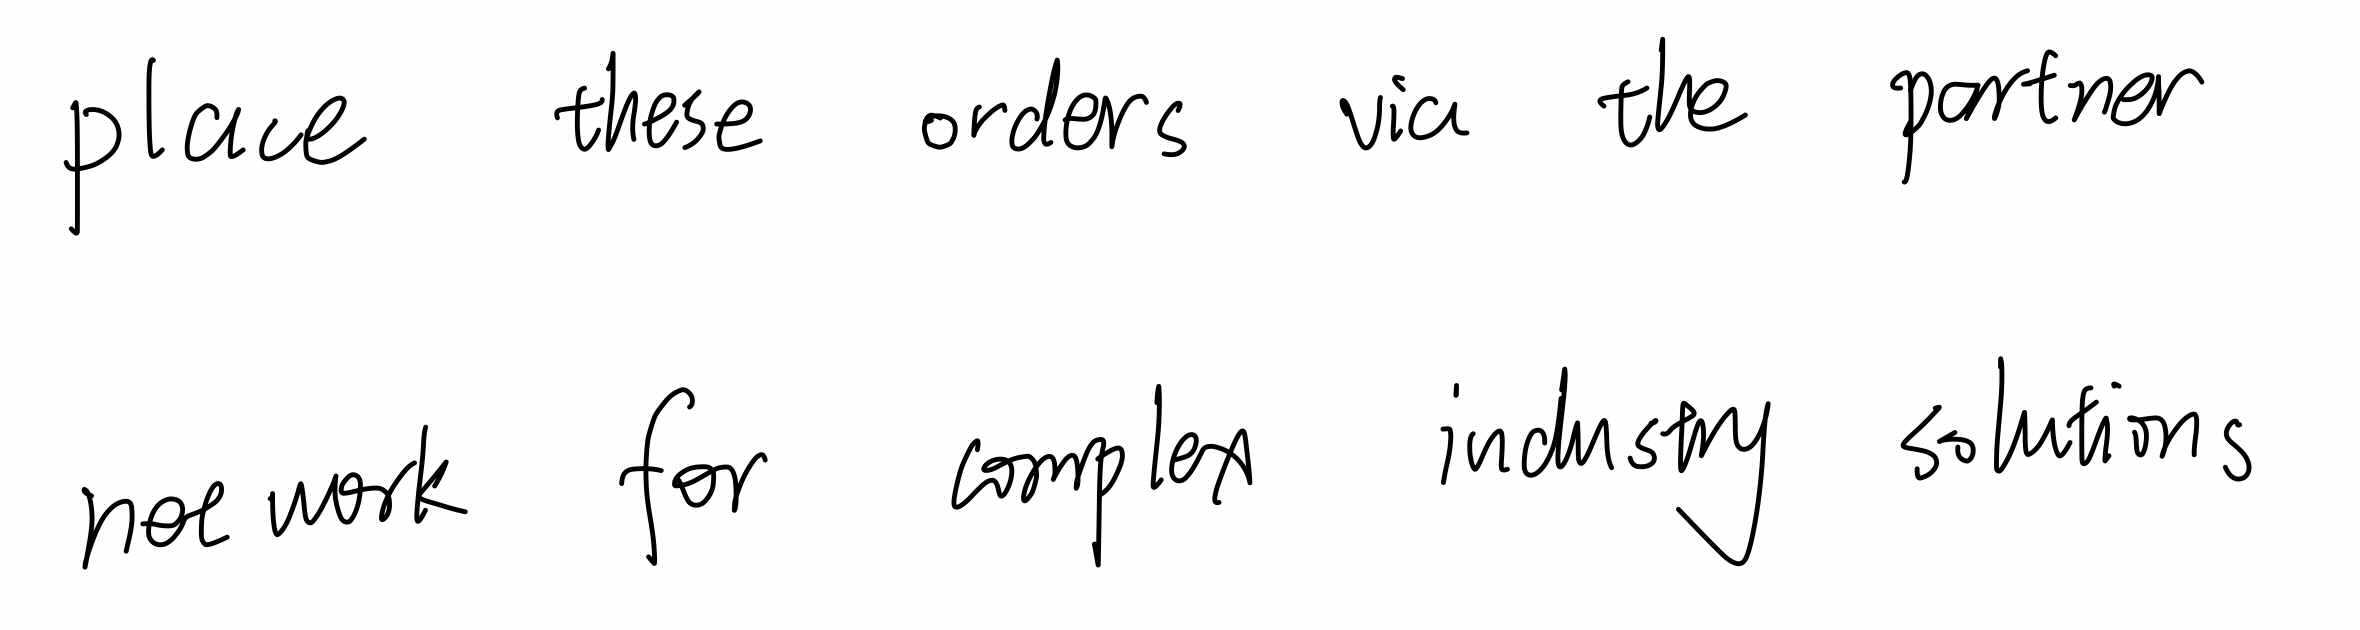 place these orders via the partner
not work for complex industry solutions